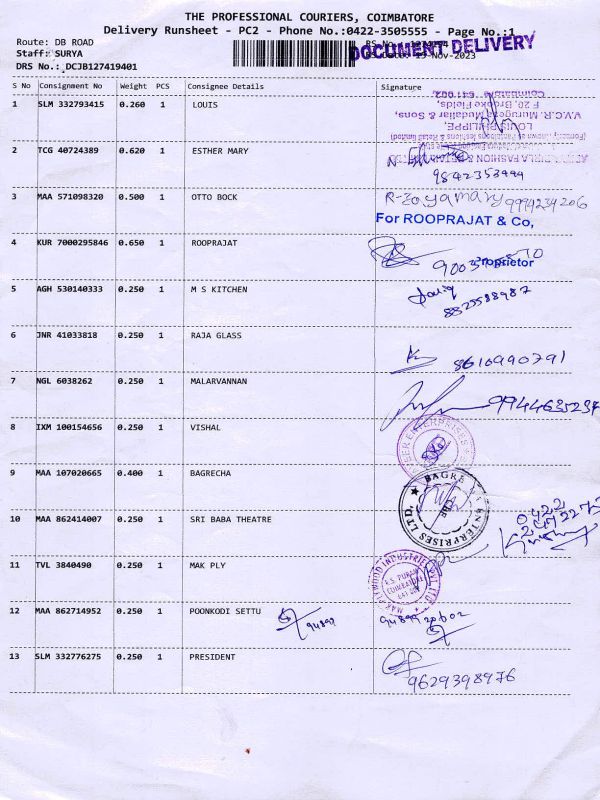 THE PROFESSIONAL COURIERS, COIMBATORE
Delivery Runsheet - PC2 - Phone No.:0422-3505555 - Page No.:1
Route: DB ROAD
DOCUMENT DELIVERY
Staff: SURYA
DRS No.: DCJB127419401
S No Consignment No Weight PCS Consignee Details Signature
1 SLM 332793415 0.260 1 LOUIS
Coimbatore 641 002.
V.V.C.R. Murugesa Mudaliar & Sons,
LOUIS PHILIPPE
2 TCG 40724389 0.620 1 ESTHER MARY
3 MAA 571098320 0.500 1 OTTO BOCK
9994234206
For ROOPRAJAT & Co,
4 KUR 7000295846 0.650 1 ROOPRAJAT
Proprietor
5 AGH 530140333 0.250 1 M S KITCHEN
6 JNR 41033818 0.250 1 RAJA GLASS
8610990791
7 NGL 6038262 0.250 1 MALARVANNAN
9944635234
8 IXM 100154656 0.250 1 VISHAL
9 MAA 107020665 0.400 1 BAGRECHA
10 MAA 862414007 0.250 1 SRI BABA THEATRE
0422
11 TVL 3840490 0.250 1 MAK PLY
12 MAA 862714952 0.250 1 POONKODI SETTU
13 SLM 332776275 0.250 1 PRESIDENT
9629398976